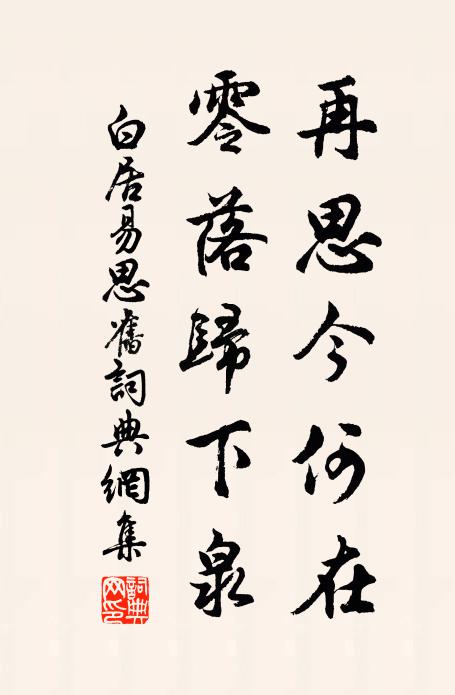 再思今何在
零落歸下泉
白居易思舊詞典網集
詞典網印